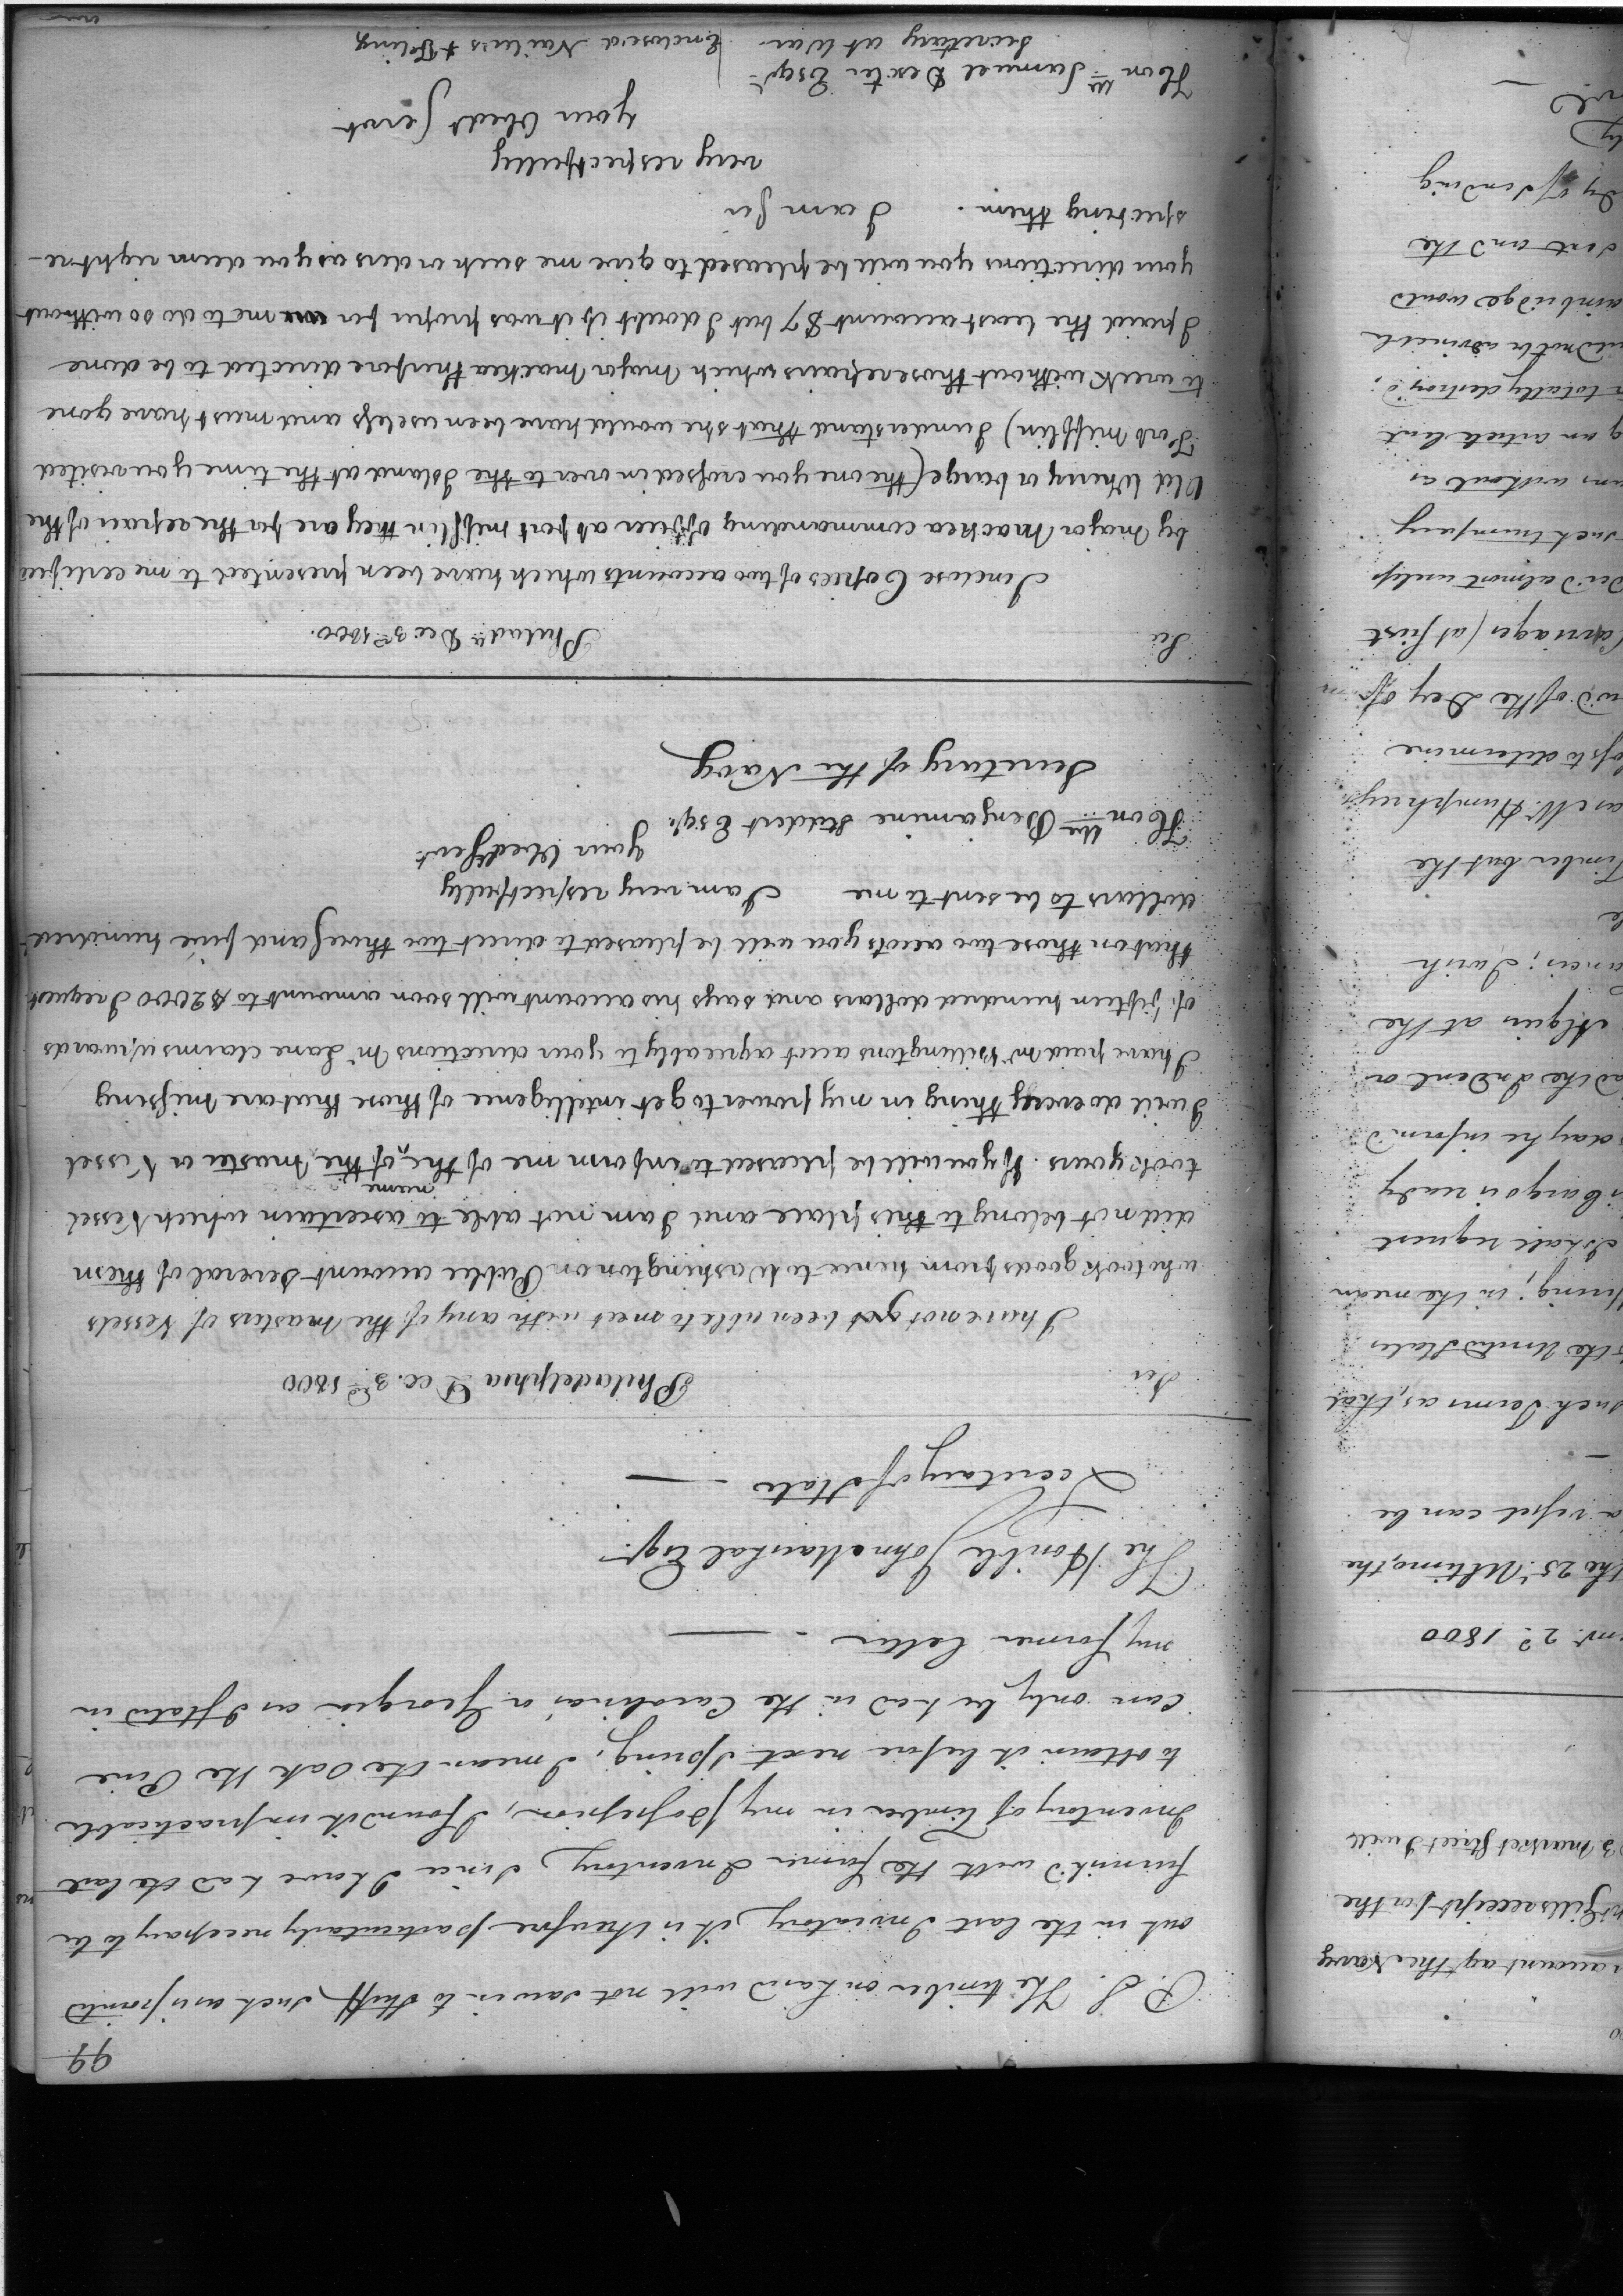 99
P.S. The timber on hand will not saw in to Stuff such as is pointd
out in the last Inventory, it is therefore particularly necessary to be
furnish'd with the former Inventory, Since I have had the last
Inventory of timber in my possession, I found it impracticable
to obtain it before next Spring, I mean the Oak the Pine
can only be had in the Carolina's or Georgia as I stated in
my former letter
The Honble John Marshal Esqr
Secretary of State
Sir Philadelphia Dec. 3rd 1800
I have not yet been able to meet with any of the Masters of Vessels
who took goods from hence to Washington on Public account several of them
did not belong to this place and I am not able to ascertain which Vessel
name
took yours. If you will be pleased to inform me of the of the Master or Vessel
I will do every thing in my power to get intelligence of those that are missing
I have paid Mr Billingtons acct agreeably to your directions Mr Lane claims upwards
of fifteen hundred dollars and says his account will soon amount to $2000 I request
that on those two accots you will be pleased to direct two thousand five hundred
dollars to be sent to me I am very respectfully
your Obed Servt
Honble Benjamine Stddert Esqr.
Secretary of the Navy
Sir Philada Dec. 3rd 1800.
I inclose Copies of two accounts which have been presented to me certified
by Major Mackea commanding officer at fort Mifflin they are for the repair of the
Old Wherry or barge (the one you crossed in over to the Island at the time you visited
Fort Mifflin) I understand that she would have been useless and must have gone
to wreck without those repairs which Major Mackea therefore directed to be done
I paid the least account $7 but I doubt if it was proper for me to do so without
your directions you will be pleased to give me such orders as you deem right re-
specting them. I am Sir
very respectfully
your Obedt Servt
Honble Samuel Dexter Esqr
Secretary at War. Enclosed Nailers &
account agt the Navy
Gills receipt for the
market Street I will
2d. 1800
the 25th Ultimo, the
a vessel can be
such Terms as, that
the United States
in the mean
I shall request
Cargo is ready
day he inform'd
the Indent or
Algiers at the
I wish
Timber but the
as Mr Humphreys
to determine
of the Dey of
Carriages (at first
almost useless
such trumpery
without as
an article but
totally destroy'd;
not be advisable
Bainbridge would
and the
of sending